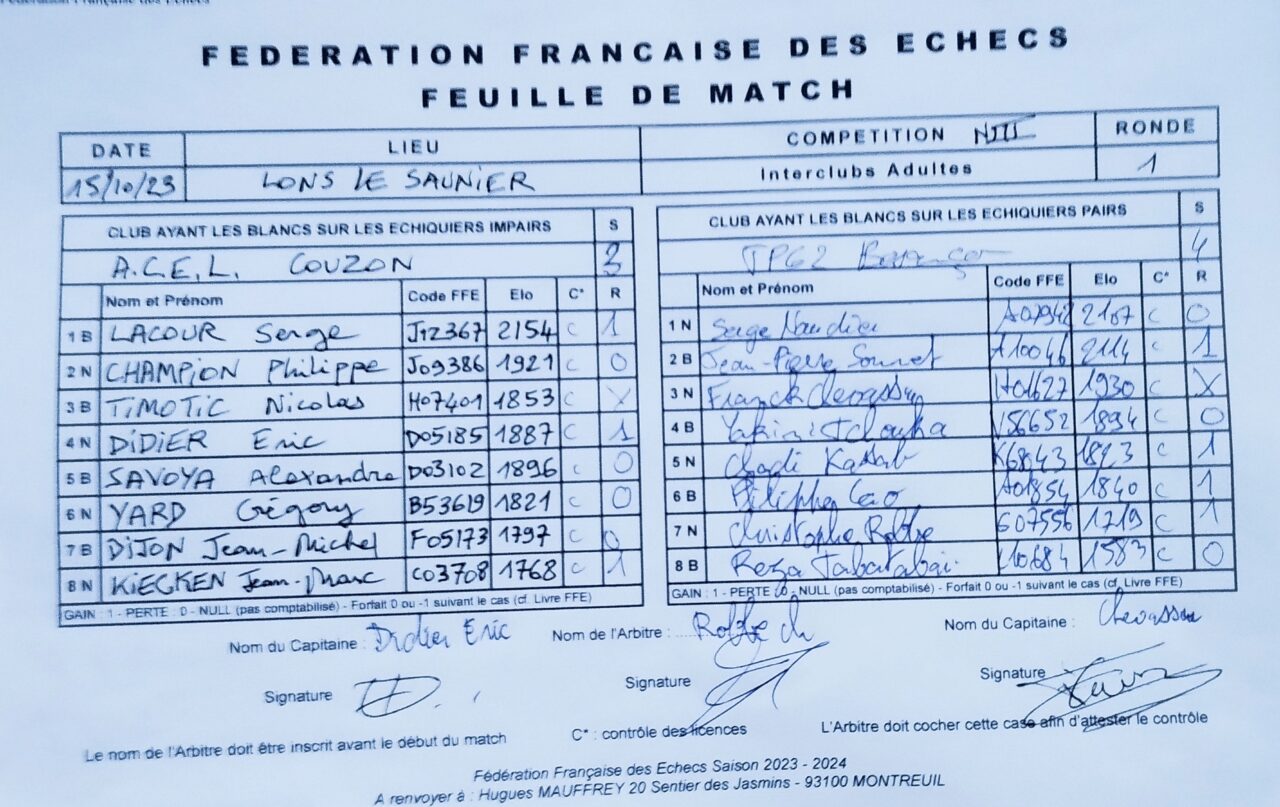 Fédération Française des Echecs
FEDERATION FRANCAISE DES ECHECS
FEUILLE DE MATCH
DATE LIEU COMPETITION NIII RONDE
15/10/23 LONS LE SAUNIER Interclubs Adultes 1
CLUB AYANT LES BLANCS SUR LES ECHIQUIERS IMPAIRS S
A.C.E.L. COUZON 3
Nom et Prénom Code FFE Elo C* R
1 B LACOUR Serge J12367 2154 C 1
2 N CHAMPION Philippe J09386 1921 C 0
3 B TIMOTIC Nicolas H07401 1853 C X
4 N DIDIER Eric D05185 1887 C 1
5 B SAVOYA Alexandre D03102 1896 C 0
6 N YARD Grégory B53619 1821 C 0
7 B DIJON Jean-Michel F05173 1797 C 0
8 N KIECKEN Jean-Marc C03708 1768 C 1
GAIN : 1 - PERTE : 0 - NULL (pas comptabilisé) - Forfait 0 ou -1 suivant le cas (cf. Livre FFE)
CLUB AYANT LES BLANCS SUR LES ECHIQUIERS PAIRS S
TPG2 Besançon 4
Nom et Prénom Code FFE Elo C* R
1 N Serge Naudier A07942 2107 C 0
2 B Jean-Pierre A10046 2114 C 1
3 N Franck Chevassu 1930 C X
4 B 1894 C 0
5 N Chadi Kassab 1823 C 1
6 B Philippe Cao A01854 1840 C 1
7 N Christophe Robbe G07556 1719 C 1
8 B Reza Tabatabai 1583 C 0
GAIN : 1 - PERTE : 0 - NULL (pas comptabilisé) - Forfait 0 ou -1 suivant le cas (cf. Livre FFE)
Nom du Capitaine : Didier Eric Nom de l'Arbitre : Robbe ch Nom du Capitaine : Chevassu
Signature Signature Signature
Le nom de l'Arbitre doit être inscrit avant le début du match C* : contrôle des licences L'Arbitre doit cocher cette case afin d'attester le contrôle
Fédération Française des Echecs Saison 2023 - 2024
A renvoyer à : Hugues MAUFFREY 20 Sentier des Jasmins - 93100 MONTREUIL